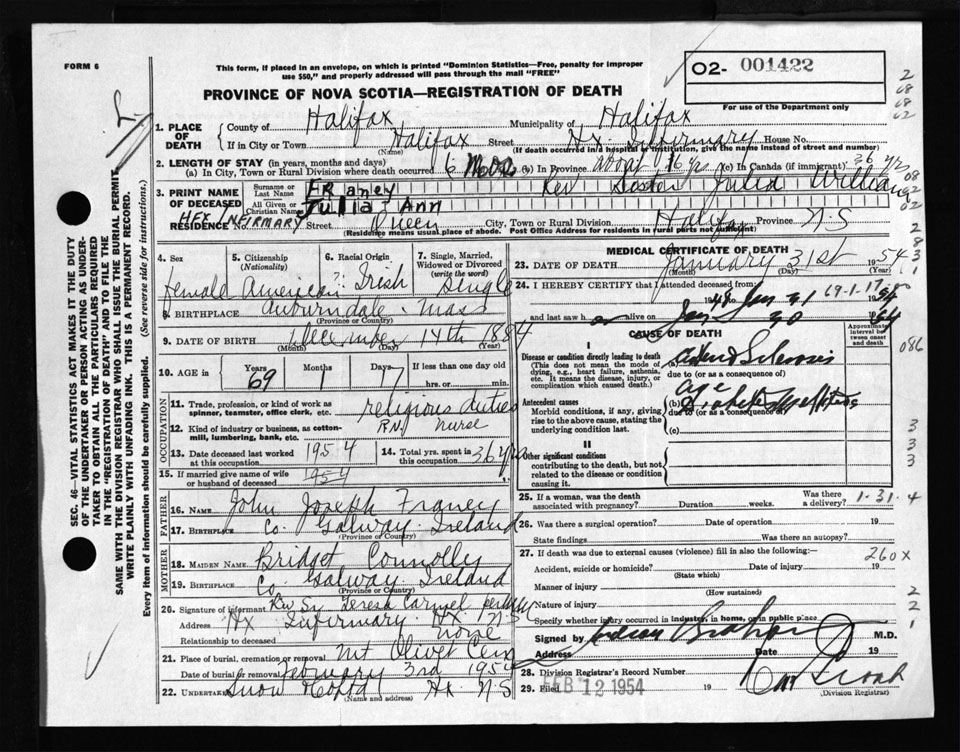 FORM 6
This form, if placed in an envelope, on which is printed "Dominion Statistics—Free, penalty for improper
use $50," and properly addressed will pass through the mail "FREE"
O2- 001422
For use of the Department only
PROVINCE OF NOVA SCOTIA—REGISTRATION OF DEATH
1. PLACE OF DEATH
County of Halifax Municipality of Halifax
If in City or Town Halifax Street Hx Infirmary House No.
(Name) (If death occurred in a hospital or institution, give the name instead of street and number)
2. LENGTH OF STAY (in years, months and days)
(a) In City, Town or Rural Division where death occurred 6 Mos (b) In Province about 16 yrs (c) In Canada (if immigrant) 36 yrs
3. PRINT NAME OF DECEASED
Surname or Last Name FRaney Rev Sister Julia William
All Given or Christian Names Julia Ann
HFX INFIRMARY
RESIDENCE No. Street Queen City, Town or Rural Division Halifax Province NS
(Residence means usual place of abode. Post Office Address for residents in rural parts not sufficient)
4. Sex female
5. Citizenship (Nationality) American
6. Racial Origin Irish
7. Single, Married, Widowed or Divorced (write the word) Single
8. BIRTHPLACE Auburndale Mass
(Province or Country)
9. DATE OF BIRTH December 14th 1884
(Month) (Day) (Year)
10. AGE in Years 69 Months 1 Days 7 If less than one day old hrs. or min.
OCCUPATION
11. Trade, profession, or kind of work as spinner, teamster, office clerk, etc. religious duties
12. Kind of industry or business, as cotton-mill, lumbering, bank, etc. R.N. nurse
13. Date deceased last worked at this occupation 1954
14. Total yrs. spent in this occupation 36 yrs
15. If married give name of wife or husband of deceased 1954
FATHER
16. NAME John Joseph Franey
17. BIRTHPLACE Co. Galway Ireland
(Province or Country)
MOTHER
18. MAIDEN NAME Bridget Connolly
19. BIRTHPLACE Co Galway Ireland
(Province or Country)
20. Signature of informant Rev Sr Teresa Carmel
Address Hx Infirmary Hx NS
Relationship to deceased none
21. Place of burial, cremation or removal Mt Olivet Cem
Date of burial or removal February 3rd 1954
22. UNDERTAKER Snow Hx NS
MEDICAL CERTIFICATE OF DEATH
23. DATE OF DEATH January 31st 1954
(Month) (Day) (Year)
24. I HEREBY CERTIFY that I attended deceased from:
1948 Jan 31 69-1-17
and last saw h alive on Jan 30
CAUSE OF DEATH
Approximate interval between onset and death
I
Disease or condition directly leading to death
(This does not mean the mode of dying, e.g., heart failure, asthenia, etc. It means the disease, injury, or complication which caused death.)
(a) Sclerosis
due to (or as a consequence of)
age
Antecedent causes
Morbid conditions, if any, giving rise to the above cause, stating the underlying condition last.
(b) Diabetes Mellitus
due to (or as a consequence of)
(c)
II
Other significant conditions
contributing to the death, but not related to the disease or condition causing it.
25. If a woman, was the death associated with pregnancy? Duration weeks. Was there a delivery?
1.31.4
26. Was there a surgical operation? Date of operation 19
State findings Was there an autopsy?
27. If death was due to external causes (violence) fill in also the following:
260X
Accident, suicide or homicide? Date of injury 19
(State which)
Manner of injury
(How sustained)
Nature of injury
Specify whether injury occurred in industry, in home, or in public place
Signed by M.D.
Address Date 19
28. Division Registrar's Record Number
29. Filed FEB 12 1954 19
(Division Registrar)
086
SEC. 46—VITAL STATISTICS ACT MAKES IT THE DUTY
OF THE UNDERTAKER OR PERSON ACTING AS UNDER-
TAKER TO OBTAIN ALL THE PARTICULARS REQUIRED
IN THE "REGISTRATION OF DEATH" AND TO FILE THE
SAME WITH THE DIVISION REGISTRAR WHO SHALL ISSUE THE BURIAL PERMIT.
WRITE PLAINLY WITH UNFADING INK. THIS IS A PERMANENT RECORD.
Every item of information should be carefully supplied. (See reverse side for instructions.)